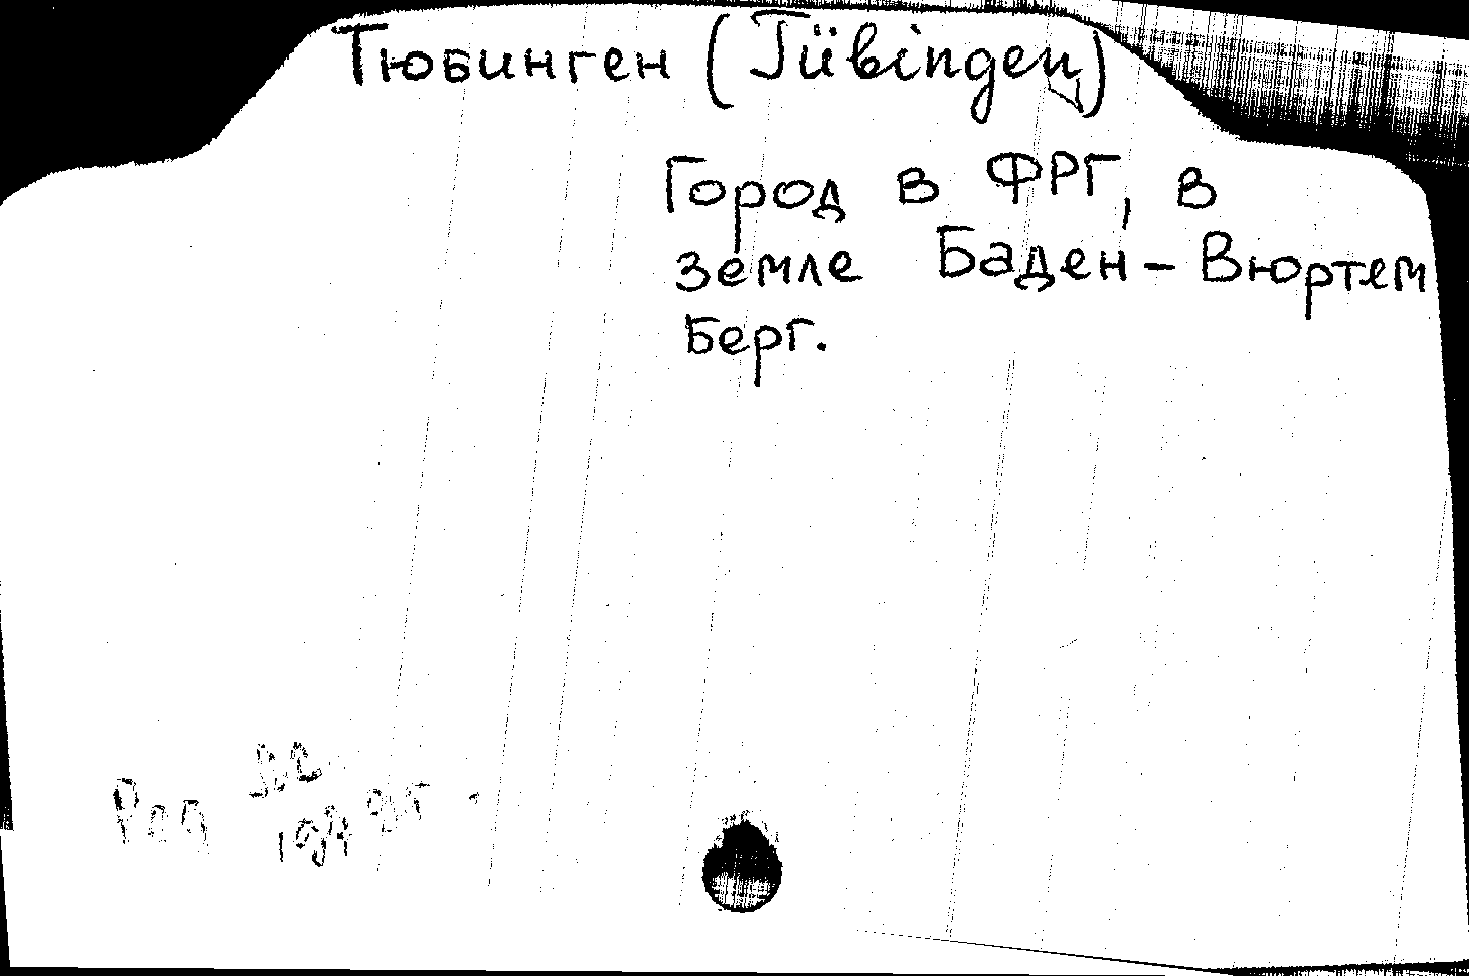 Тюбинген (Tübingen)
Город в ФРГ, в
земле Баден-Вюртем
берг.